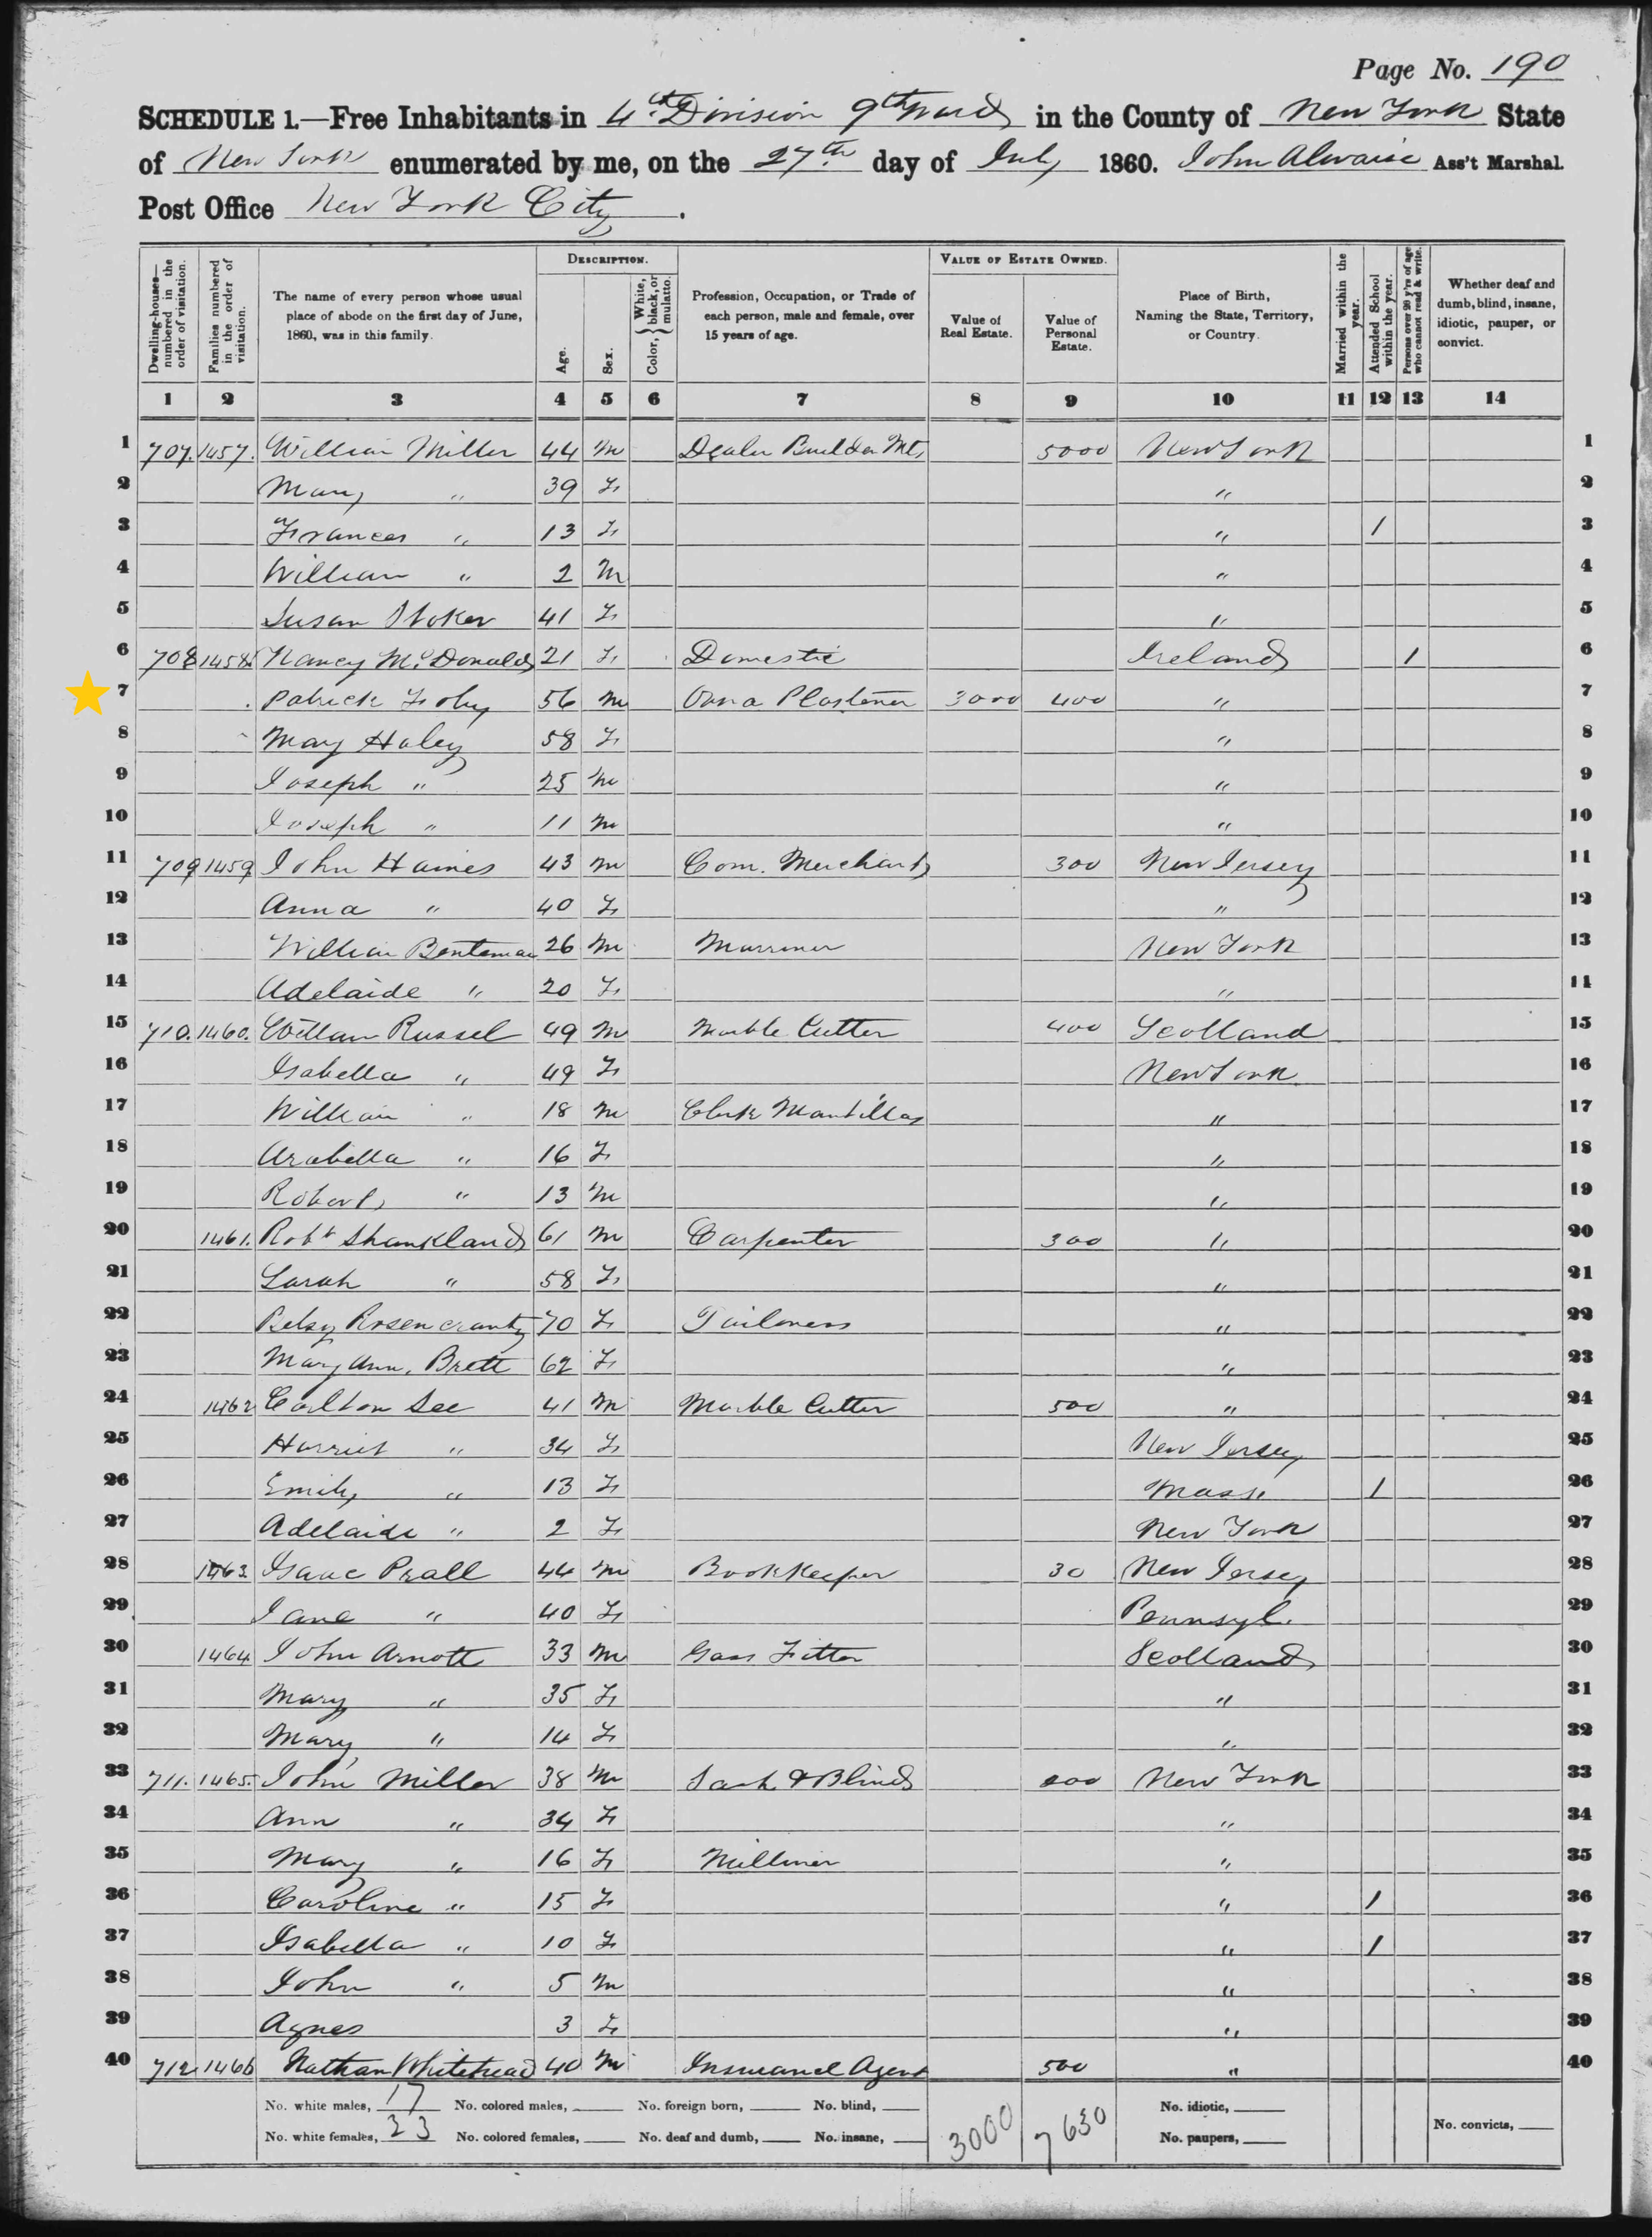 Page No. 190
SCHEDULE 1.—Free Inhabitants in 4th Division 9th Ward in the County of New York State
of New York enumerated by me, on the 27th day of July 1860. John Alwaise Ass't Marshal.
Post Office New York City.
Dwelling-houses—numbered in the order of visitation.
Families numbered in the order of visitation.
The name of every person whose usual place of abode on the first day of June, 1860, was in this family.
DESCRIPTION.
Age.
Sex.
Color, White, black, or mulatto.
Profession, Occupation, or Trade of each person, male and female, over 15 years of age.
VALUE OF ESTATE OWNED.
Value of Real Estate.
Value of Personal Estate.
Place of Birth, Naming the State, Territory, or Country.
Married within the year.
Attended School within the year.
Persons over 20 y'rs of age who cannot read & write.
Whether deaf and dumb, blind, insane, idiotic, pauper, or convict.
1 2 3 4 5 6 7 8 9 10 11 12 13 14
1 707. 1457. William Miller 44 m Dealer 5000 New York 1
2 Mary " 39 F " 2
3 Frances " 13 F " / 3
4 William " 2 m " 4
5 Susan 41 F " 5
6 708 1458 Nancy McDonald 21 F Domestic Ireland / 6
7 Patrick 56 m Plasterer 3000 400 " 7
8 May Haley 58 F " 8
9 Joseph " 25 m " 9
10 Joseph " 11 m " 10
11 709 1459 John Haines 43 m Com. Merchant 300 New Jersey 11
12 Anna " 40 F " 12
13 William Benteman 26 m Marriner New York 13
14 Adelaide " 20 F " 14
15 710. 1460. William Russel 49 m Marble Cutter 400 Scotland 15
16 Isabella " 49 F New York 16
17 William " 18 m Clerk Mantillas " 17
18 Arabella " 16 F " 18
19 Robert " 13 m " 19
20 1461. Robt Shankland 61 m Carpenter 300 " 20
21 Sarah " 58 F " 21
22 Betsy Rosencrantz 70 F Tailoress " 22
23 Mary Ann. Brett 62 F " 23
24 1462 Carlton See 41 m Marble Cutter 500 " 24
25 Harriet " 34 F New Jersey 25
26 Emily " 13 F Mass. / 26
27 Adelaide " 2 F New York 27
28 1463 Isaac Prall 44 m BookKeeper 30 New Jersey 28
29 Jane " 40 F Pennsyl. 29
30 1464 John Arnott 33 m Gass Fitter Scotland 30
31 Mary " 35 F " 31
32 Mary " 14 F " 32
33 711. 1465. John Miller 38 m Sash & Blinds New York 33
34 Ann " 34 F " 34
35 Mary " 16 F Milliner " 35
36 Caroline " 15 F " / 36
37 Isabella " 10 F " / 37
38 John " 5 m " 38
39 Agnes 3 F " 39
40 712 1466 Nathan Whitehead 40 m Insurance Agent 500 " 40
No. white males, 17 No. colored males, No. foreign born, No. blind, No. idiotic,
No. white females, 23 No. colored females, No. deaf and dumb, No. insane, 3000 7630 No. paupers, No. convicts,